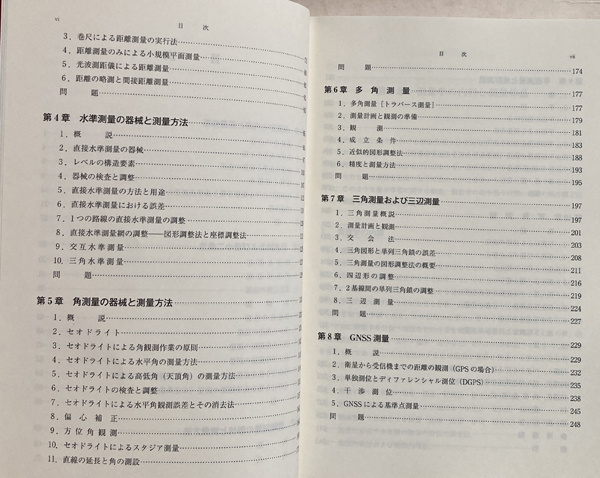 vi
目 次
3．巻尺による距離測量の実行法
4．距離測量のみによる小規模平面測量
5．光波測距儀による距離測量
6．距離の略測と間接距離測量
問 題
第4章 水準測量の器械と測量方法
1．概 説
2．直接水準測量の器械
3．レベルの構造要素
4．器械の検査と調整
5．直接水準測量の方法と用途
6．直接水準測量における誤差
7．1つの路線の直接水準測量の調整
8．直接水準測量網の調整――図形調整法と座標調整法
9．交互水準測量
10．三角水準測量
問 題
第5章 角測量の器械と測量方法
1．概 説
2．セオドライト
3．セオドライトによる角観測作業の原則
4．セオドライトによる水平角の測量方法
5．セオドライトによる高低角（天頂角）の測量方法
6．セオドライトの検査と調整
7．セオドライトによる水平角観測誤差とその消去法
8．偏心補正
9．方位角観測
10．セオドライトによるスタジア測量
11．直線の延長と角の測設
目 次
vii
問 題 174
第6章 多角測量 177
1．多角測量［トラバース測量］ 177
2．測量計画と観測の準備 179
3．観 測 181
4．成立条件 183
5．近似的図形調整法 188
6．精度と測量方法 193
問 題 195
第7章 三角測量および三辺測量 197
1．三角測量概説 197
2．測量計画と観測 201
3．交会法 203
4．三角図形と単列三角鎖の誤差 208
5．三角測量の図形調整法の概要 211
6．四辺形の調整 216
7．2基線間の単列三角鎖の調整 221
8．三辺測量 224
問 題 227
第8章 GNSS測量 229
1．概 説 229
2．衛星から受信機までの距離の観測（GPSの場合） 232
3．単独測位とディファレンシャル測位（DGPS） 235
4．干渉測位 238
5．GNSSによる基準点測量 245
問 題 248